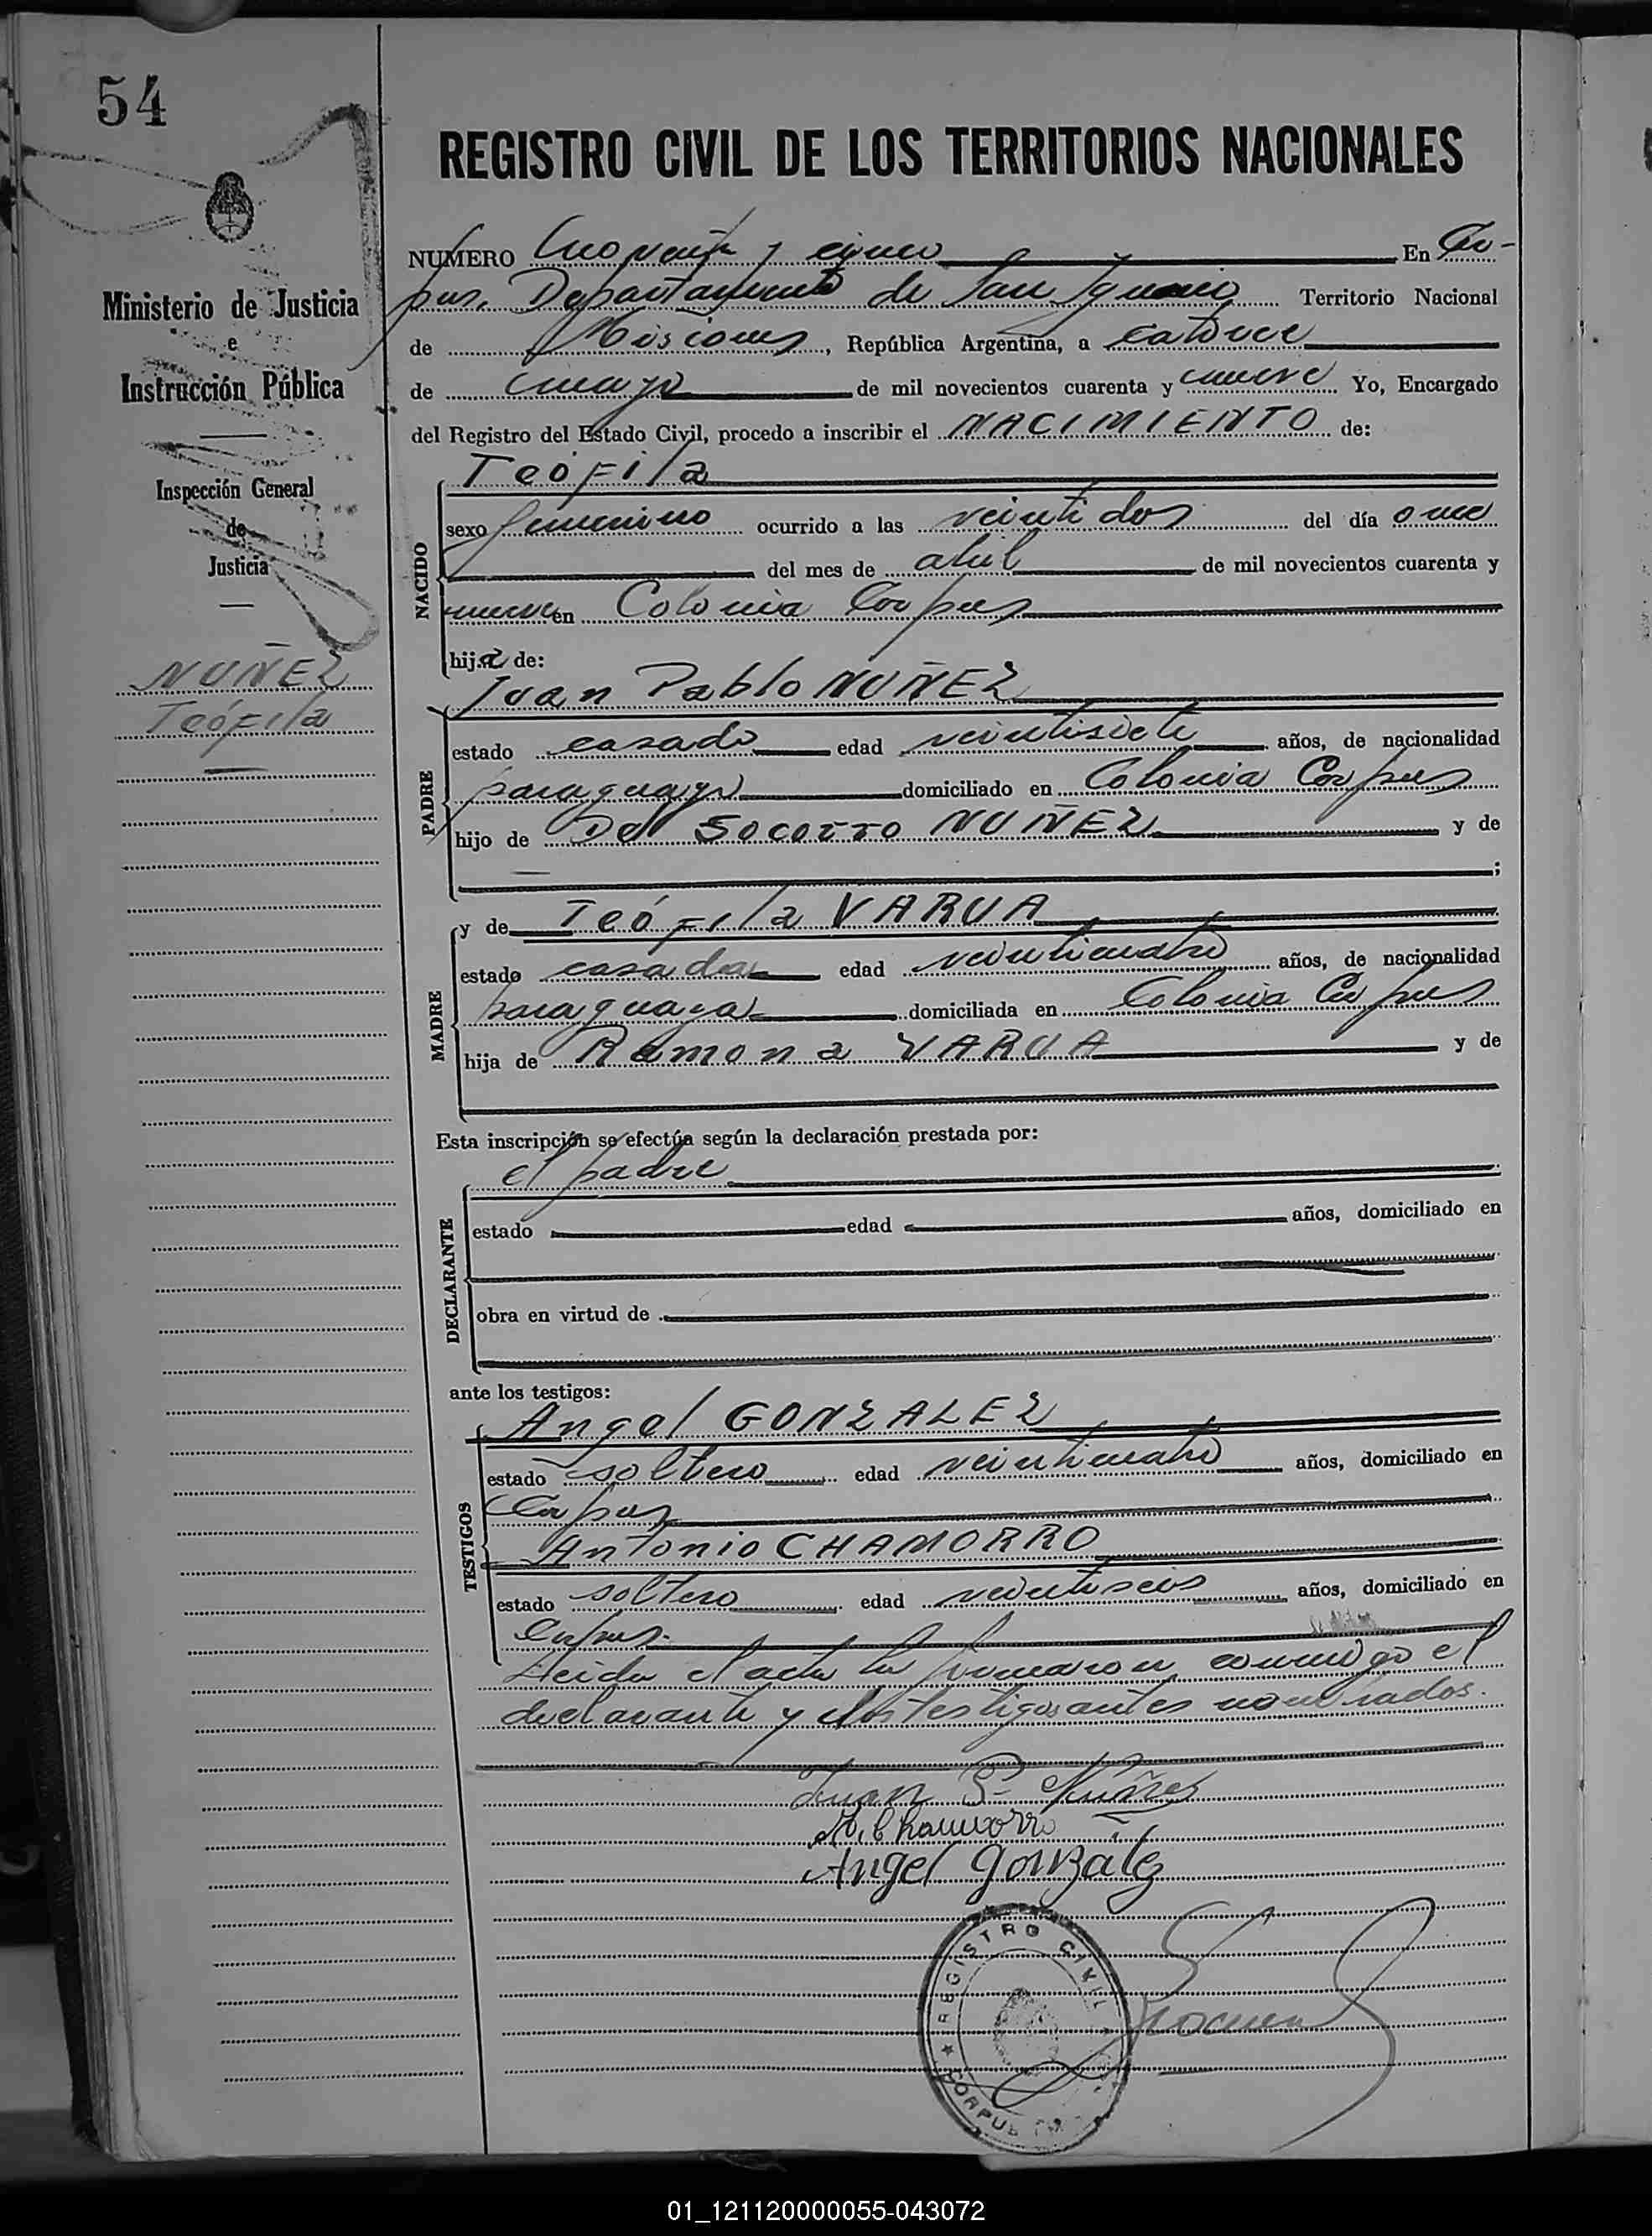 54
REGISTRO CIVIL DE LOS TERRITORIOS NACIONALES
Ministerio de Justicia
e
Instrucción Pública
Inspección General
de
Justicia
NUÑEZ
Teófila
NUMERO Cuarenta y cinco En Cor-
pus, Departamento de San Ignacio Territorio Nacional
de Misiones, República Argentina, a catorce
de mayo de mil novecientos cuarenta y nueve Yo, Encargado
del Registro del Estado Civil, procedo a inscribir el NACIMIENTO de:
NACIDO
Teófila
sexo femenino ocurrido a las veintidos del día once
del mes de abril de mil novecientos cuarenta y
nueve en Colonia Corpus
hija de:
PADRE
Juan Pablo NUÑEZ
estado casado edad veintisiete años, de nacionalidad
paraguayo domiciliado en Colonia Corpus
hijo de Del Socorro NUÑEZ y de
;
MADRE
y de Teófila VARUA
estado casada edad veinticuatro años, de nacionalidad
paraguaya domiciliada en Colonia Corpus
hija de Ramona VARUA y de
Esta inscripción se efectúa según la declaración prestada por:
DECLARANTE
el padre
estado edad años, domiciliado en
obra en virtud de
ante los testigos:
TESTIGOS
Angel GONZALEZ
estado soltero edad veinticuatro años, domiciliado en
Corpus
Antonio CHAMORRO
estado soltero edad veintiseis años, domiciliado en
Corpus.
Leida el acta la firmaron conmigo el
declarante y los testigos antes nombrados.
Juan P. Núñez
Chamorro
Angel Gonzalez
REGISTRO CIVIL
CORPUS
01_121120000055-043072